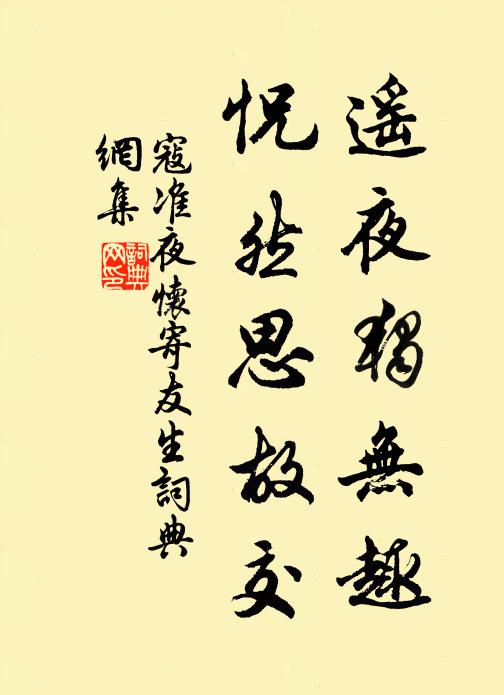 遥夜獨無趣
怳然思故交
寇准夜懷寄友生詞典
網集
詞典
网印